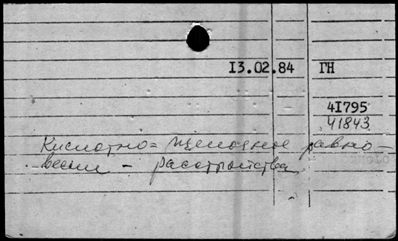 13.02.84 ГН
41795
41843
Кислотно=щелочное равно-
весие - расстройства